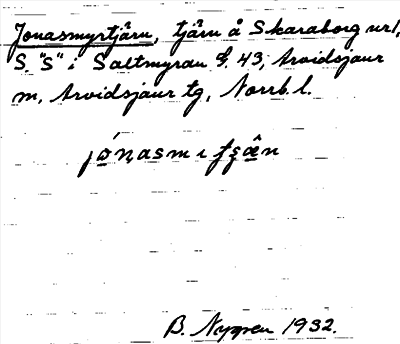 Jonasmyrtjärn, tjärn å Skaraborg nr 1,
S "S" i Saltmyran Ef. 43, Arvidsjaur
m, Arvidsjaur tg, Norrb. l.
jónasm ı tʂæ̂n
B. Nyppen 1932.